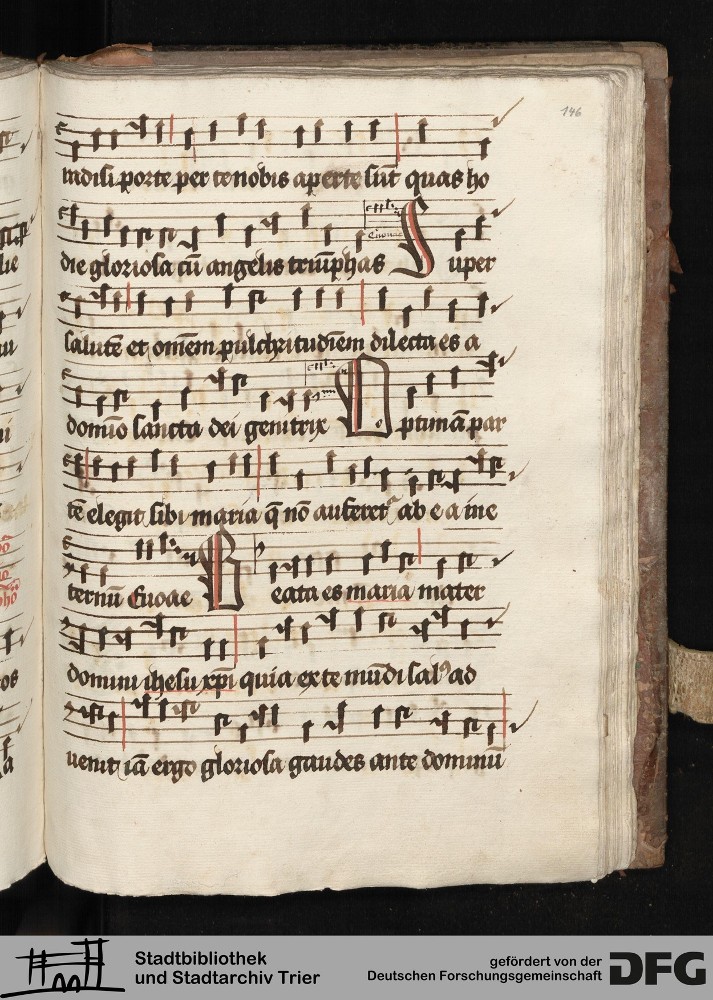 146
radisi porte per te nobis aperte sūt quas ho
die gloriosa cū angelis triūphas Super
salutē et omēm pulchritudiēm dilecta es a
domīo sancta dei genitrix Optimā par
tē elegit sibi maria q̄ nō auferet᷑ ab ea ine
ternū Euoae Beata es maria mater
domini ihesu xp̄i quia ex te mūdi salꝰ ad
uenit iā ergo gloriosa gaudes ante dominū
Stadtbibliothek
und Stadtarchiv Trier
gefördert von der
Deutschen Forschungsgemeinschaft DFG